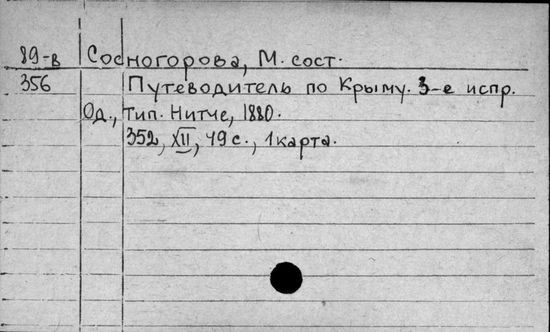 89-в Сосногорова, М. сост.
356 Путеводитель по Крыму. 3-е испр.
Од., тип. Нитче, 1880.
352, XII, 49 с., 1 карта.